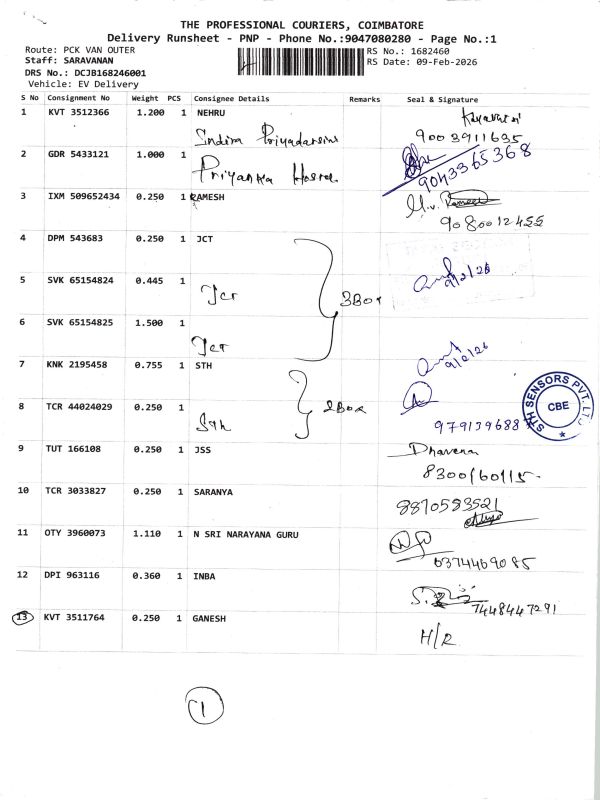 THE PROFESSIONAL COURIERS, COIMBATORE
Delivery Runsheet - PNP - Phone No.:9047080280 - Page No.:1
Route: PCK VAN OUTER
Staff: SARAVANAN
DRS No.: DCJB168246001
Vehicle: EV Delivery
RS No.: 1682460
RS Date: 09-Feb-2026
S No Consignment No Weight PCS Consignee Details Remarks Seal & Signature
1 KVT 3512366 1.200 1 NEHRU
Indira Priyadarsini 9003911635
2 GDR 5433121 1.000 1
Priyanka 9043365368
3 IXM 509652434 0.250 1 RAMESH
9080012455
4 DPM 543683 0.250 1 JCT
5 SVK 65154824 0.445 1
Jct 3Box 9/2/26
6 SVK 65154825 1.500 1
Jct 9/2/26
7 KNK 2195458 0.755 1 STH
8 TCR 44024029 0.250 1
Sth 2Box 979139688
STH SENSORS PVT. LTD
CBE
9 TUT 166108 0.250 1 JSS
8300160115
10 TCR 3033827 0.250 1 SARANYA 8870583521
11 OTY 3960073 1.110 1 N SRI NARAYANA GURU
6374469085
12 DPI 963116 0.360 1 INBA
7448447291
13 KVT 3511764 0.250 1 GANESH
H/R
1